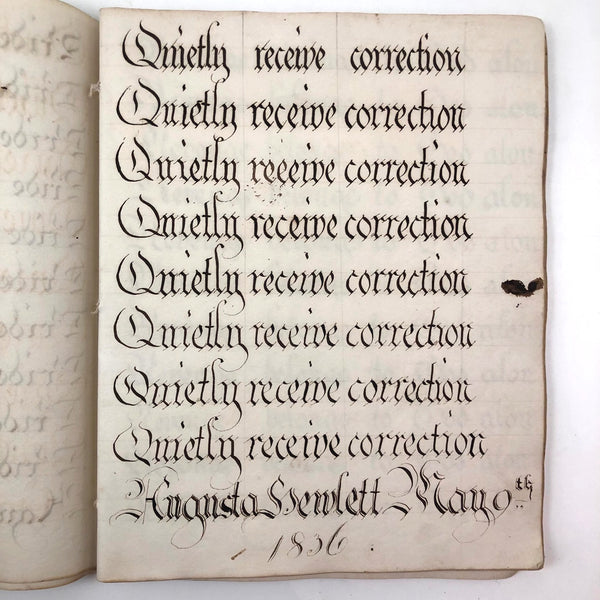 Quietly receive correction
Quietly receive correction
Quietly receive correction
Quietly receive correction
Quietly receive correction
Quietly receive correction
Quietly receive correction
Quietly receive correction
Augusta Hewlett May 9th
1836.